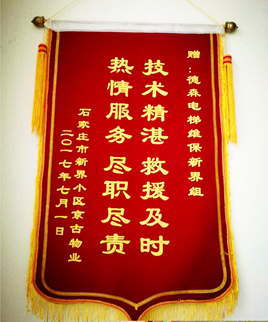 赠：德森电梯维保新界组
技术精湛 救援及时
热情服务 尽职尽责
石家庄市新界小区京古物业
二〇一七年七月一日